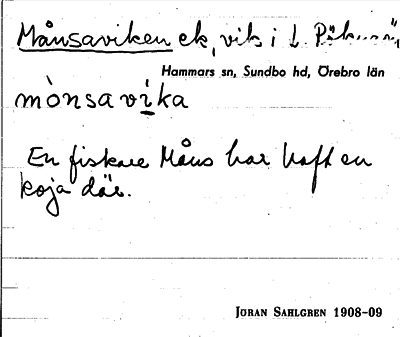 Månsaviken ek, vik i L.
Hammars sn, Sundbo hd, Örebro län
mònsavi̲ka
En fiskare Måns har haft en
koja där.
JÖRAN SAHLGREN 1908-09